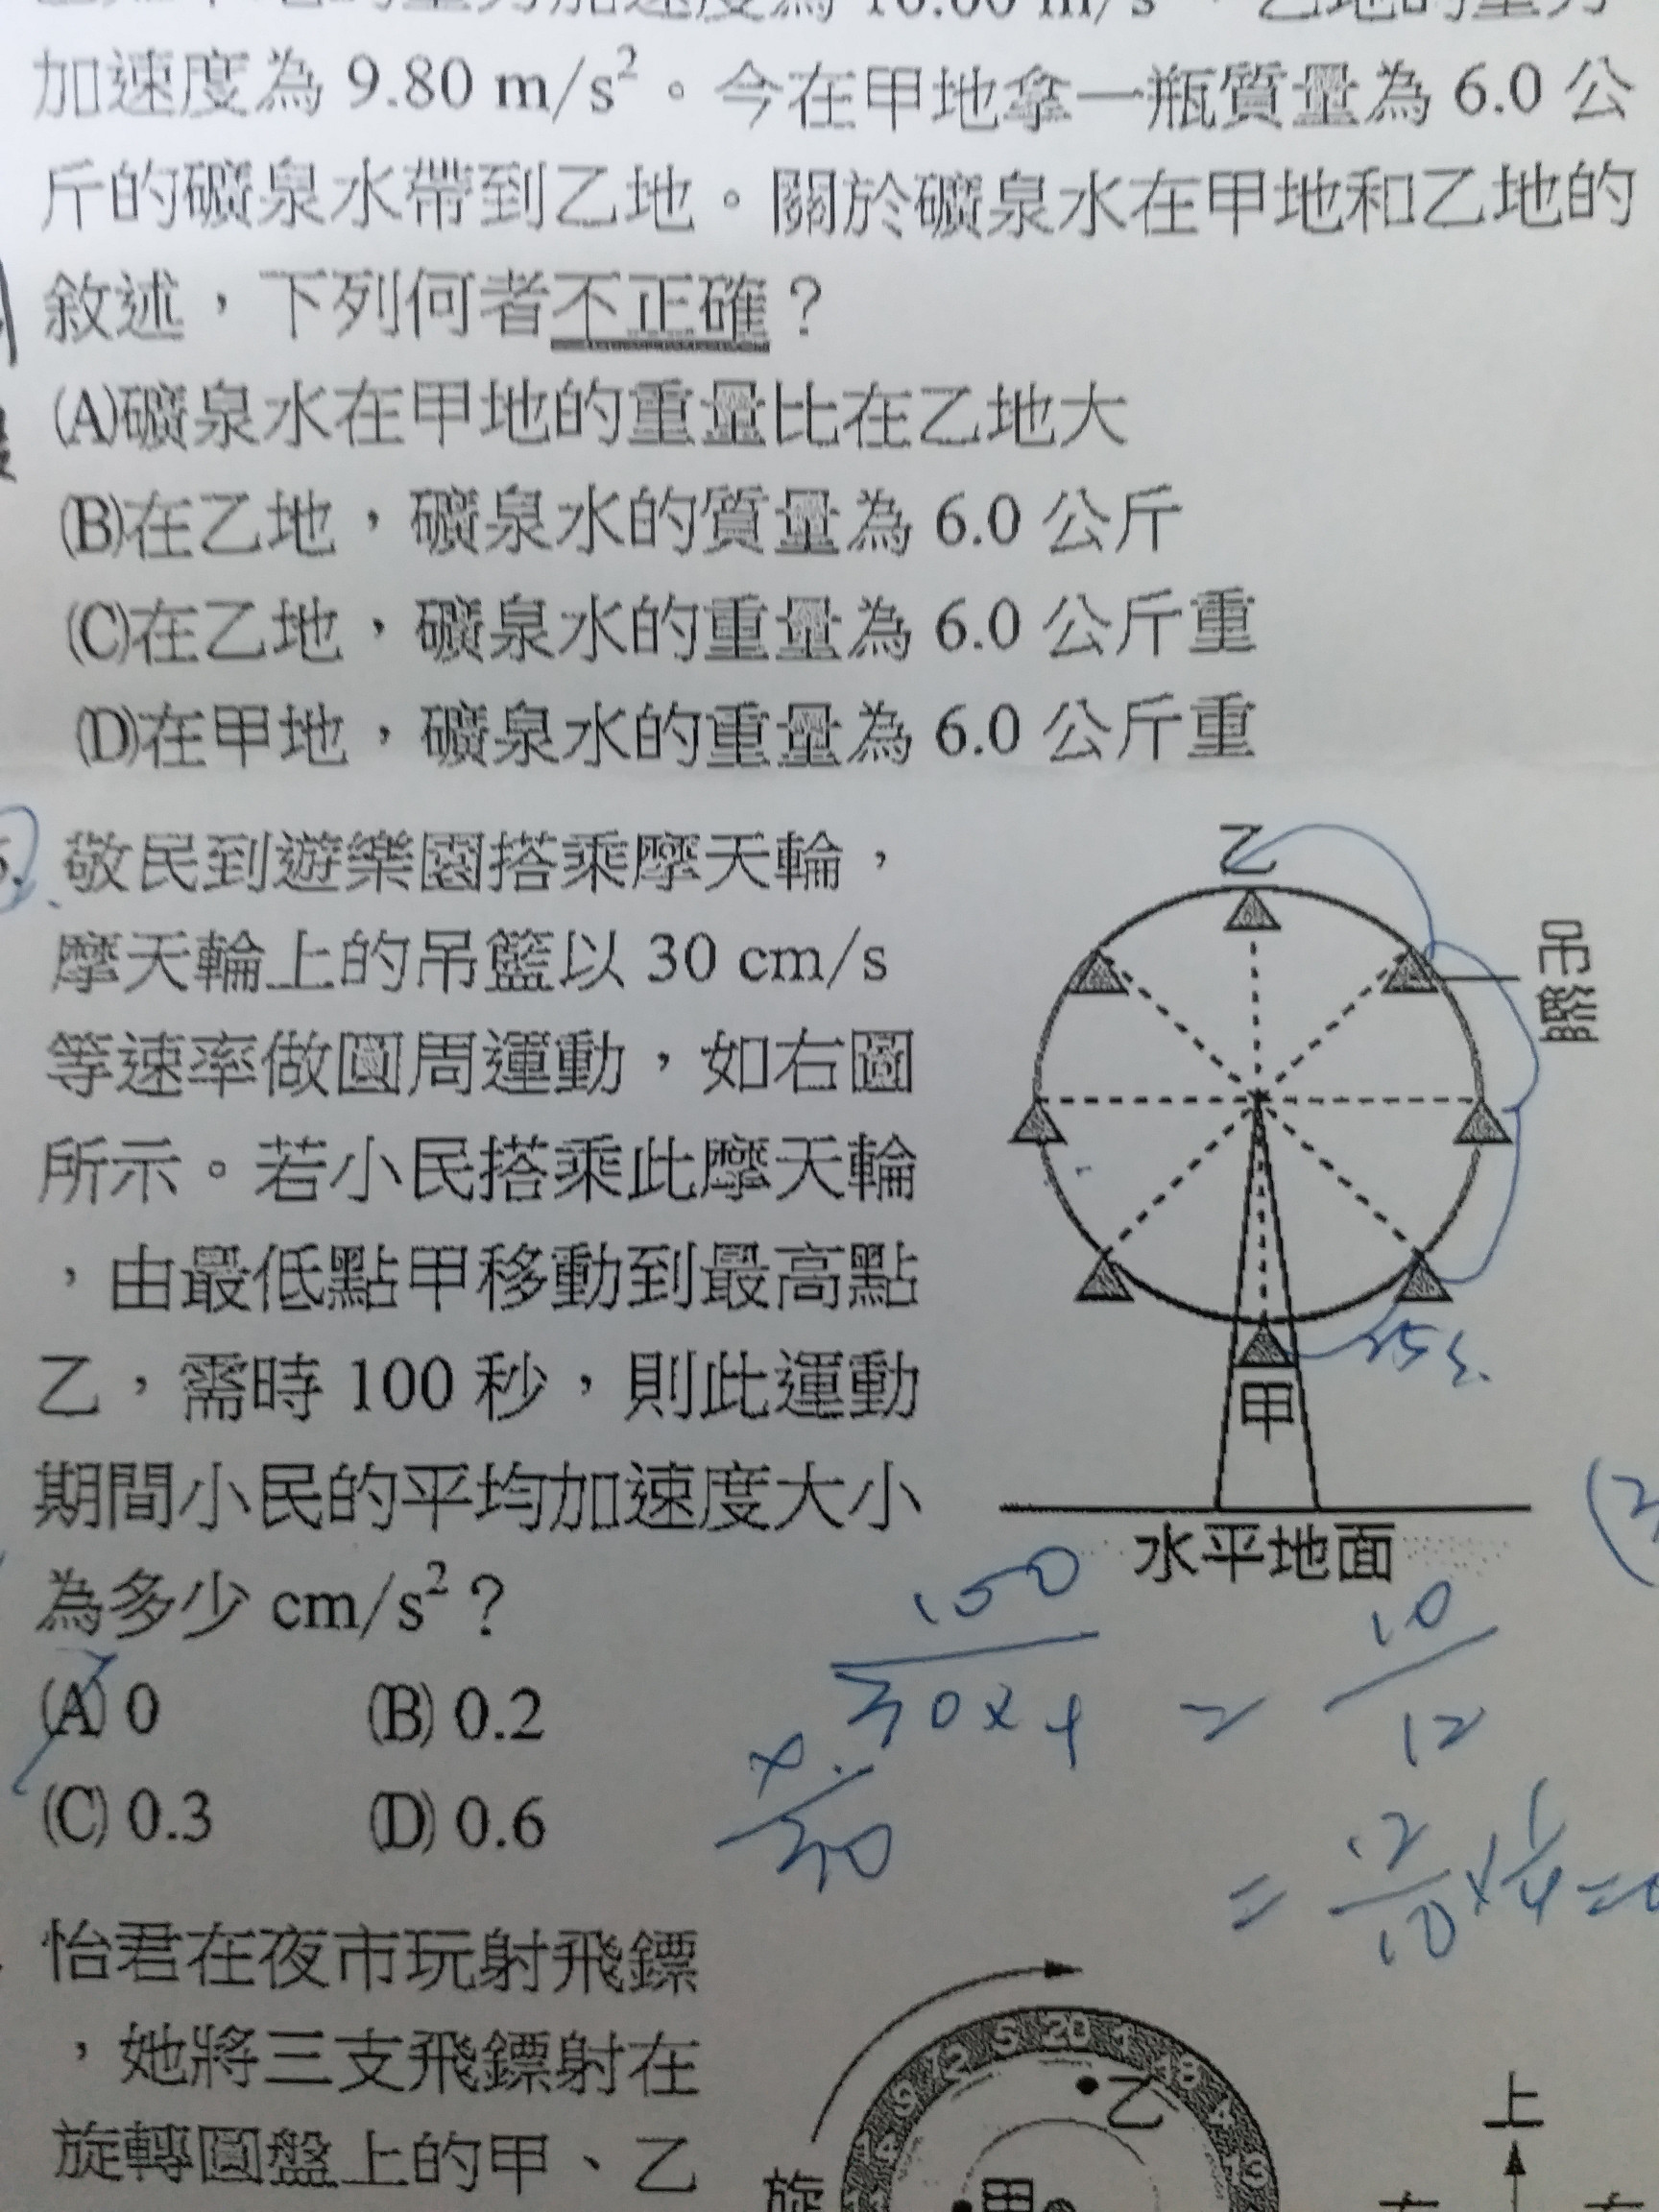 加速度為 9.80 m/s²。今在甲地拿一瓶質量為 6.0 公
斤的礦泉水帶到乙地。關於礦泉水在甲地和乙地的
敘述，下列何者不正確？
(A)礦泉水在甲地的重量比在乙地大
(B)在乙地，礦泉水的質量為 6.0 公斤
(C)在乙地，礦泉水的重量為 6.0 公斤重
(D)在甲地，礦泉水的重量為 6.0 公斤重
敬民到遊樂園搭乘摩天輪，
摩天輪上的吊籃以 30 cm/s
等速率做圓周運動，如右圖
所示。若小民搭乘此摩天輪
，由最低點甲移動到最高點
乙，需時 100 秒，則此運動
期間小民的平均加速度大小
為多少 cm/s²？
(A) 0 (B) 0.2
(C) 0.3 (D) 0.6
乙
吊籃
甲
水平地面
25s.
100
30×4
=
10
12
30
= 12/10 × 1/4 =
怡君在夜市玩射飛鏢
，她將三支飛鏢射在
旋轉圓盤上的甲、乙
9 12 5 20 1 18 4 13
14
乙
甲
旋
上